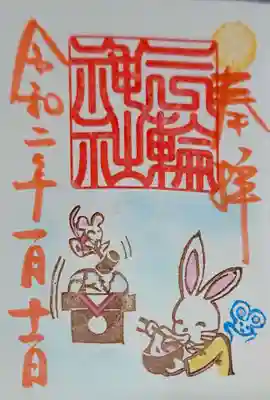 奉拝
三輪
神社
令和二年一月十一日